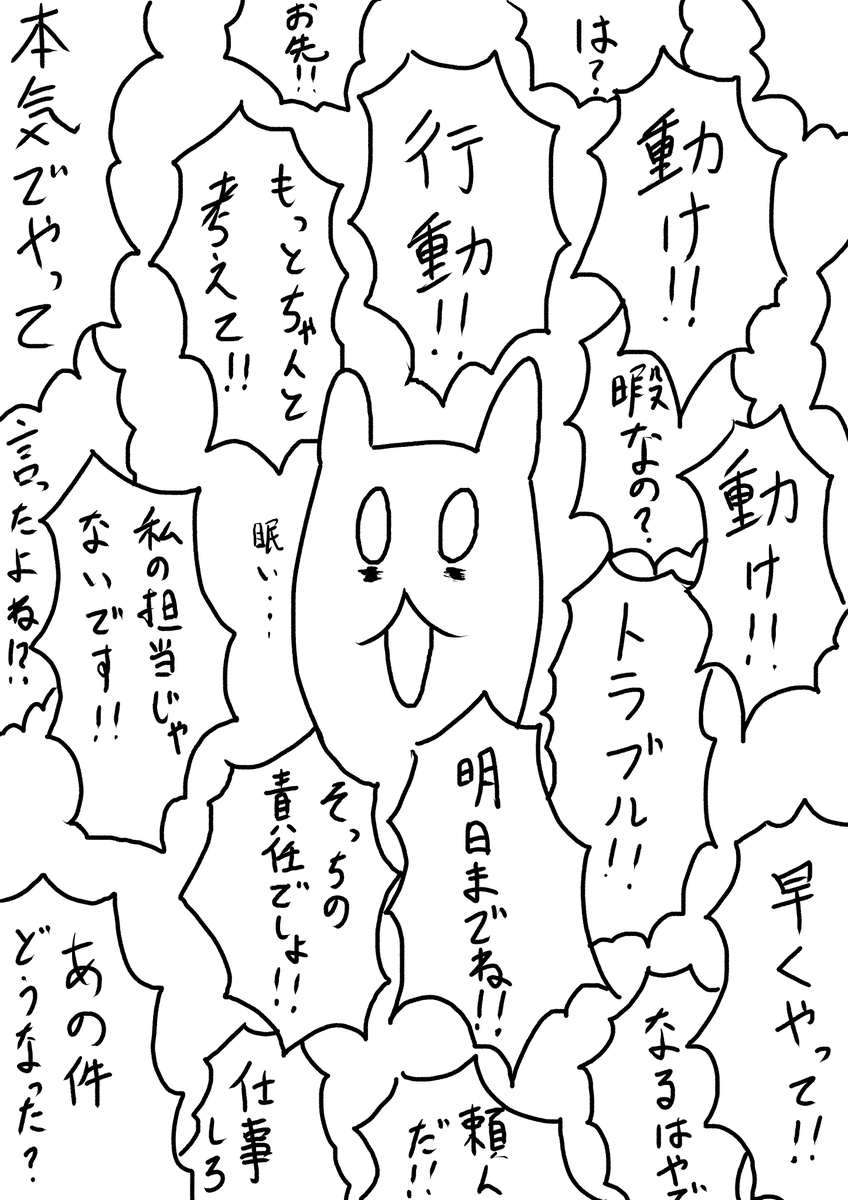 は?
お先!!
本気でやって
動け!!
行動!!
もっとちゃんと
考えて!!
暇なの?
動け!!
言ったよね!?
私の担当じゃ
ないです!!
眠い...
トラブル!!
明日までね!!
そっちの
責任でしょ!!
早くやって!!
あの件
どうなった?
仕事
しろ
頼ん
だ!!
なるはやで